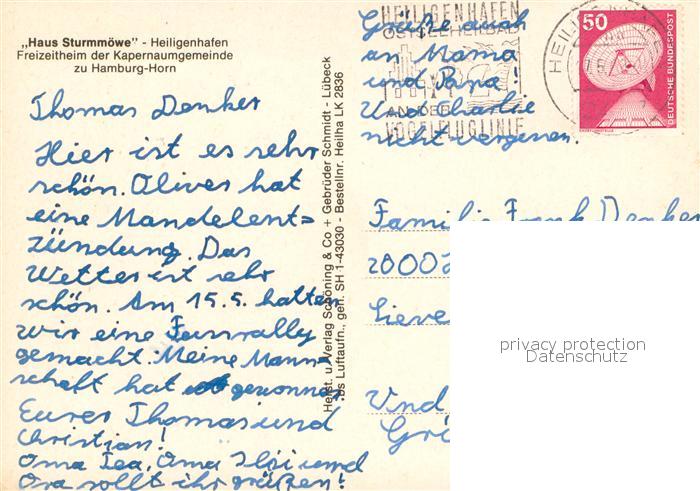 „Haus Sturmmöwe" - Heiligenhafen
Freizeitheim der Kapernaumgemeinde
zu Hamburg-Horn
Thomas Denker
Hier ist es sehr
schön. Oliver hat
eine Mandelent=
zündung. Das
Wetter ist sehr
schön. Am 15.5. hatten
wir eine
gemacht. Meine Mann-
schaft hat gewonnen
Eurer Thomas und
Christian!
Oma Tea, Oma Ilsi und
Opa sollt ihr grüßen!
Herst. u. Verlag Schöning & Co + Gebrüder Schmidt - Lübeck
bs Luftaufn., gen. SH 1-43030 - Bestellnr. Heilha LK 2836
Grüße auch
an Mama
und Papa!
Und Charlie
nicht vergessen.
HEILIGENHAFEN
OSTSEEHEILBAD
AN DER
VOGELFLUGLINIE
HEILIGENHAFEN
50
DEUTSCHE BUNDESPOST
Familie Frank Denker
2000
Sieve
Und
Grü
privacy protection
Datenschutz